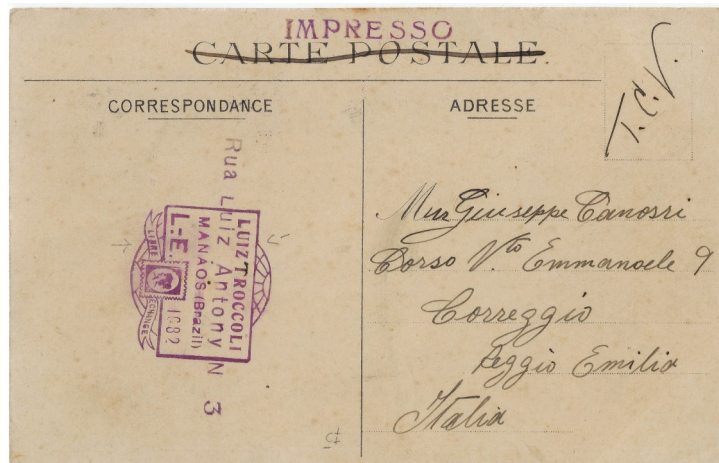 IMPRESSO
CARTE POSTALE.
CORRESPONDANCE
ADRESSE
T.C.V.
Rua Luiz Antony N 3
LUIZ TROCCOLI
MANÁOS (Brazil)
L.-E. 1082
LIBRE
ECHANGE
Giuseppe Canossi
Corso V.to Emmanuele 9
Correggio
Reggio Emilia
Italia